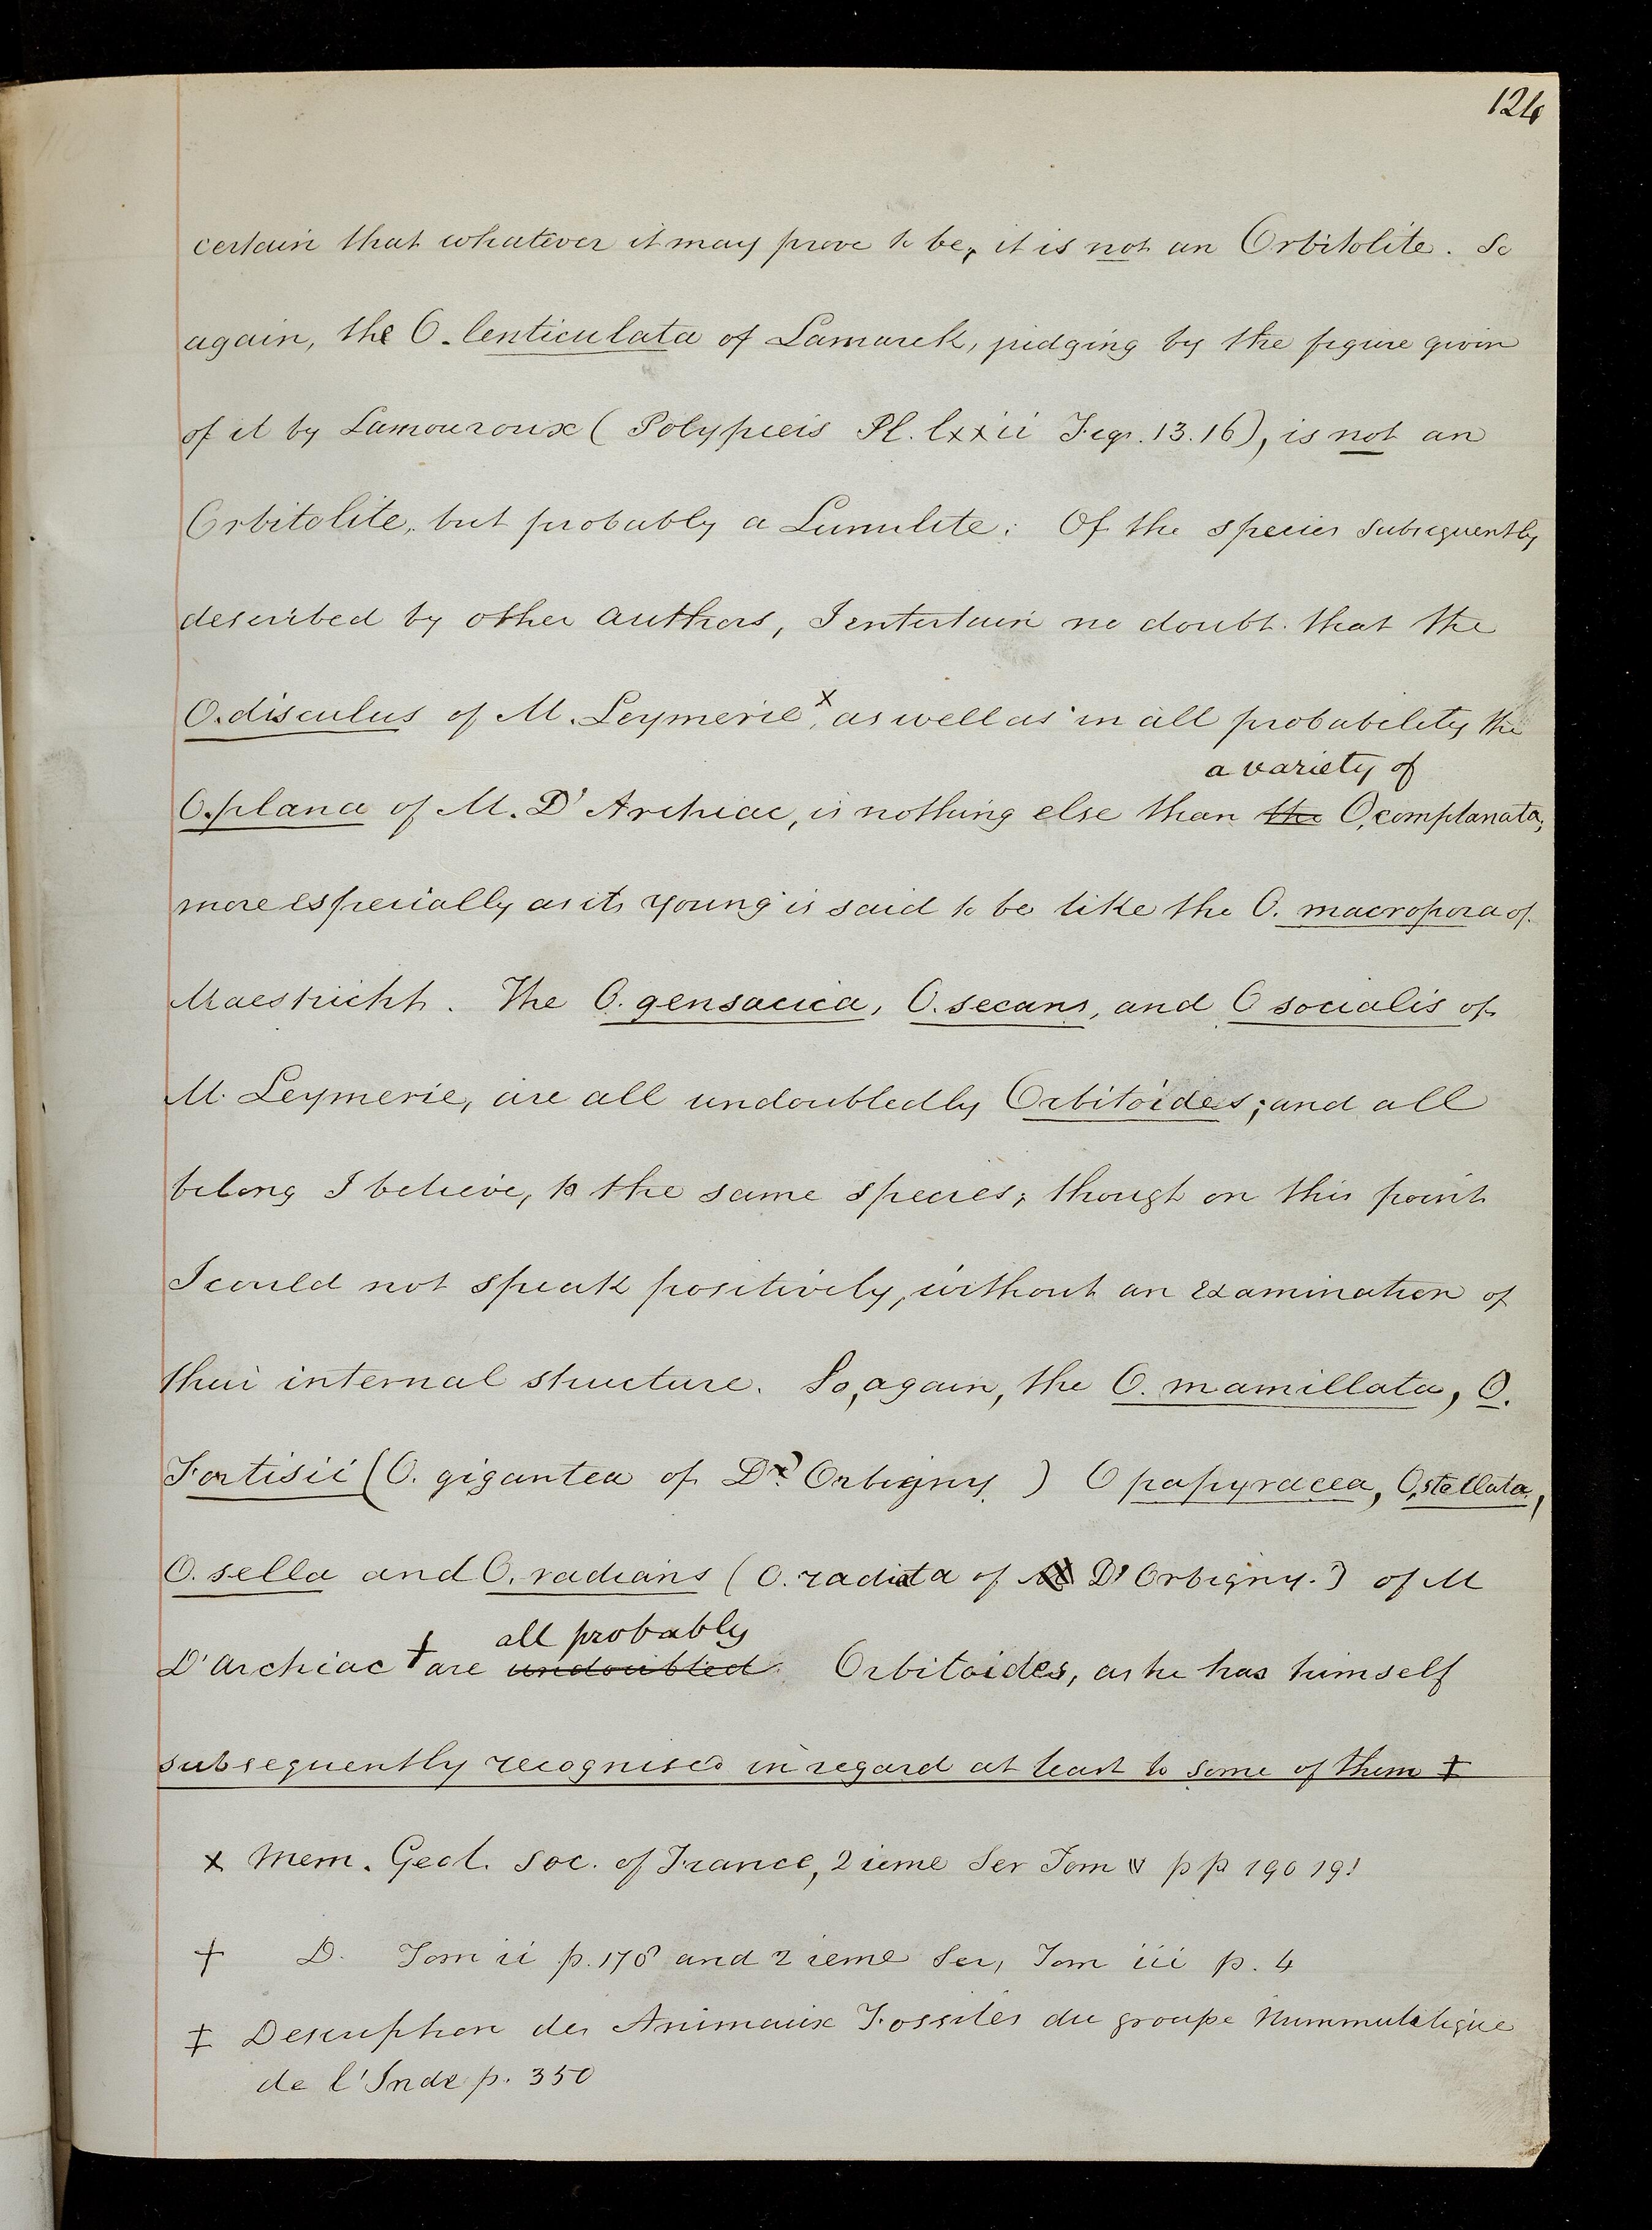 124
certain that whatever it may prove to be, it is not an Orbitolite. So
again, the O. lenticulata of Lamarck, judging by the figure given
of it by Lamouroux (Polypieis Pl. lxxii Figr. 13.16), is not an
Orbitolite, but probably a Lunulite. Of the species subsequently
described by other authors, I entertain no doubt that the
O. disculus of M. Leymerie x, as well as in all probability the
a variety of
O. plana of M. D'Archiac, is nothing else than the O. complanata;
more especially as its young is said to be like the O. macropora of
Maestricht. The O. gensacica, O. secans, and O socialis of
M. Leymerie, are all undoubtedly Orbitoides; and all
belong I believe, to the same species; though on this point
I could not speak positively, without an examination of
their internal structure. So, again, the O. mamillata, O.
Fortisii (O. gigantea of D' Orbigny) O papyracea, O. stellata,
O. sella and O. radians (O. radiata of M D'Orbigny.) of M
all probably
D'Archiac † are undoubted Orbitoides, as he has himself
subsequently recognised in regard at least to some of them ‡
x Mem. Geol. Soc. of France, 2ieme Ser Tom v pp 190 191
† D. Tom ii p. 178 and 2ieme Ser, Tom iii p. 4
‡ Description des Animaux Fossiles du groupe Nummulitique
de l'Inde p. 350